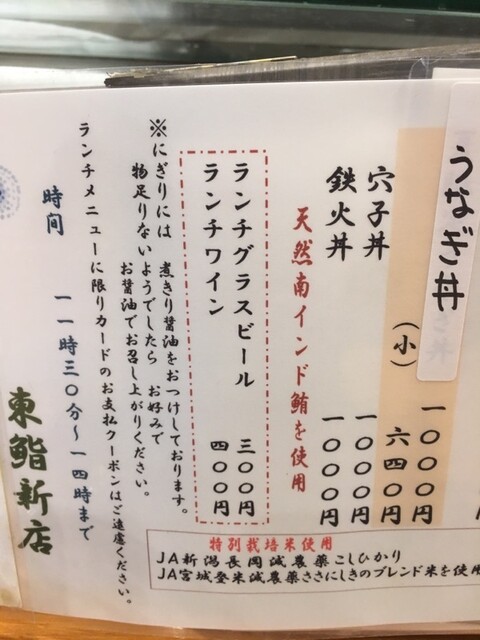 うなぎ丼 一〇〇〇円
（小） 六四〇円
穴子丼 一〇〇〇円
鉄火丼 一〇〇〇円
天然南インド鮪を使用
ランチグラスビール 三〇〇円
ランチワイン 四〇〇円
※にぎりには 煮きり醤油をおつけしております。
物足りないようでしたら お好みで
お醤油でお召し上がりください。
ランチメニューに限りカードのお支払クーポンはご遠慮ください。
時間 一一時三〇分〜一四時まで
東鮨新店
特別栽培米使用
JA新潟長岡減農薬こしひかり
JA宮城登米減農薬ささにしきのブレンド米を使用